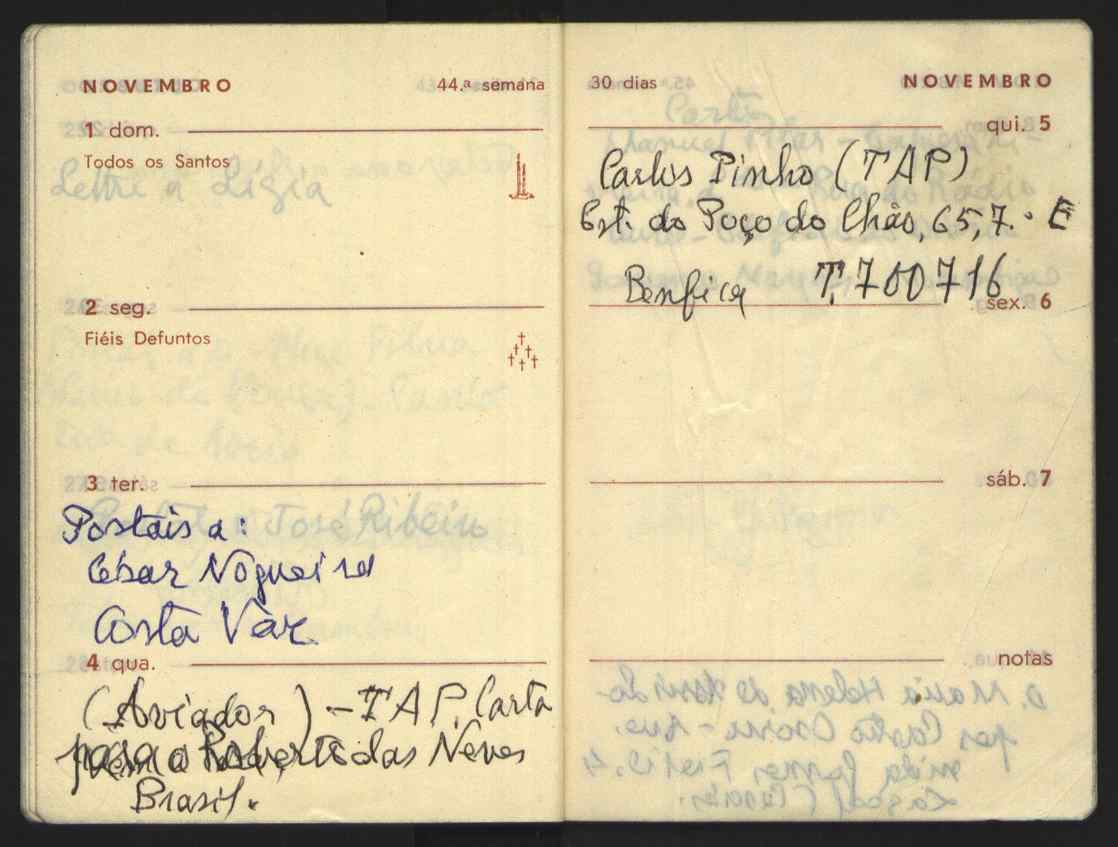 NOVEMBRO 44.ª semana
1 dom.
Todos os Santos
Lettre a Ligia
2 seg.
Fiéis Defuntos
3 ter.
Postais a: José Ribeiro
César Nogueira
Costa Vaz.
4 qua.
(Aviador) - TAP. Carta
para o Roberto das Neves
Brasil.
30 dias NOVEMBRO
qui. 5
Carlos Pinho (TAP)
Est. do Poço do Chão, 65, 7.º E
Benfica T. 700716
sex. 6
sáb. 7
notas